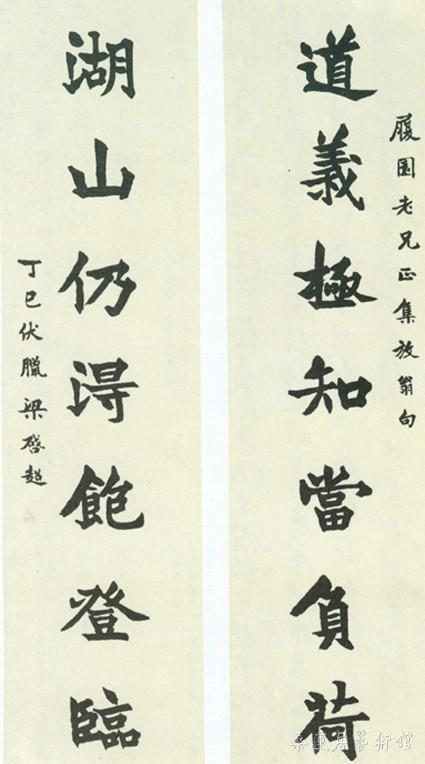 履園老兄正集放翁句
道義極知當負荷
湖山仍淂飽登臨
丁巳伏臘梁啓超